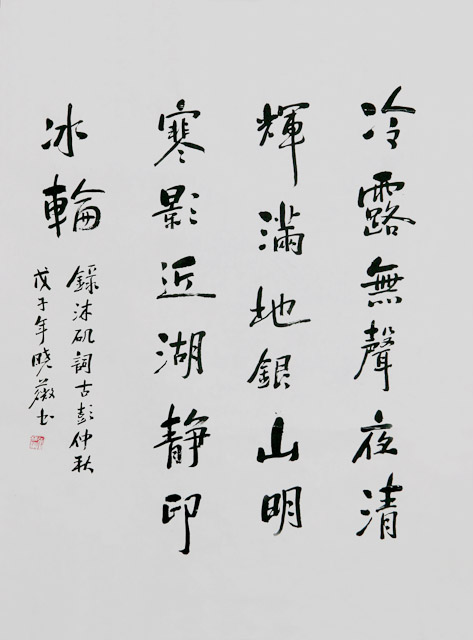 冷露無聲夜清
輝滿地銀山明
寒影近湖静印
冰輪
錄沐矶詞古彭仲秋
戊子年曉薇书